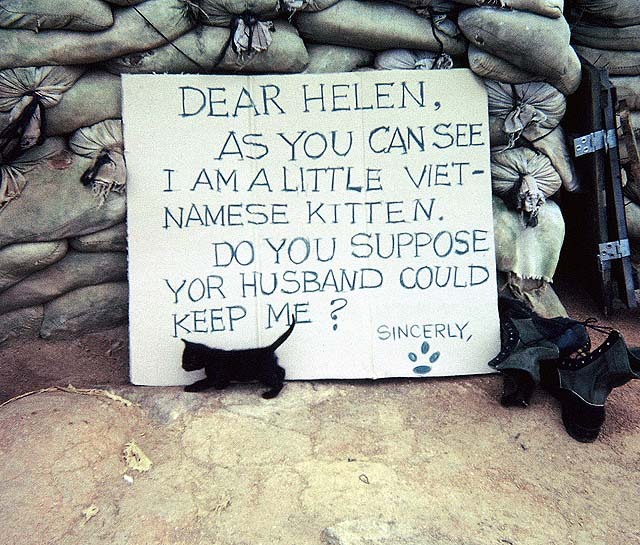 DEAR HELEN,
AS YOU CAN SEE
I AM A LITTLE VIET-
NAMESE KITTEN.
DO YOU SUPPOSE
YOR HUSBAND COULD
KEEP ME ?
SINCERLY,